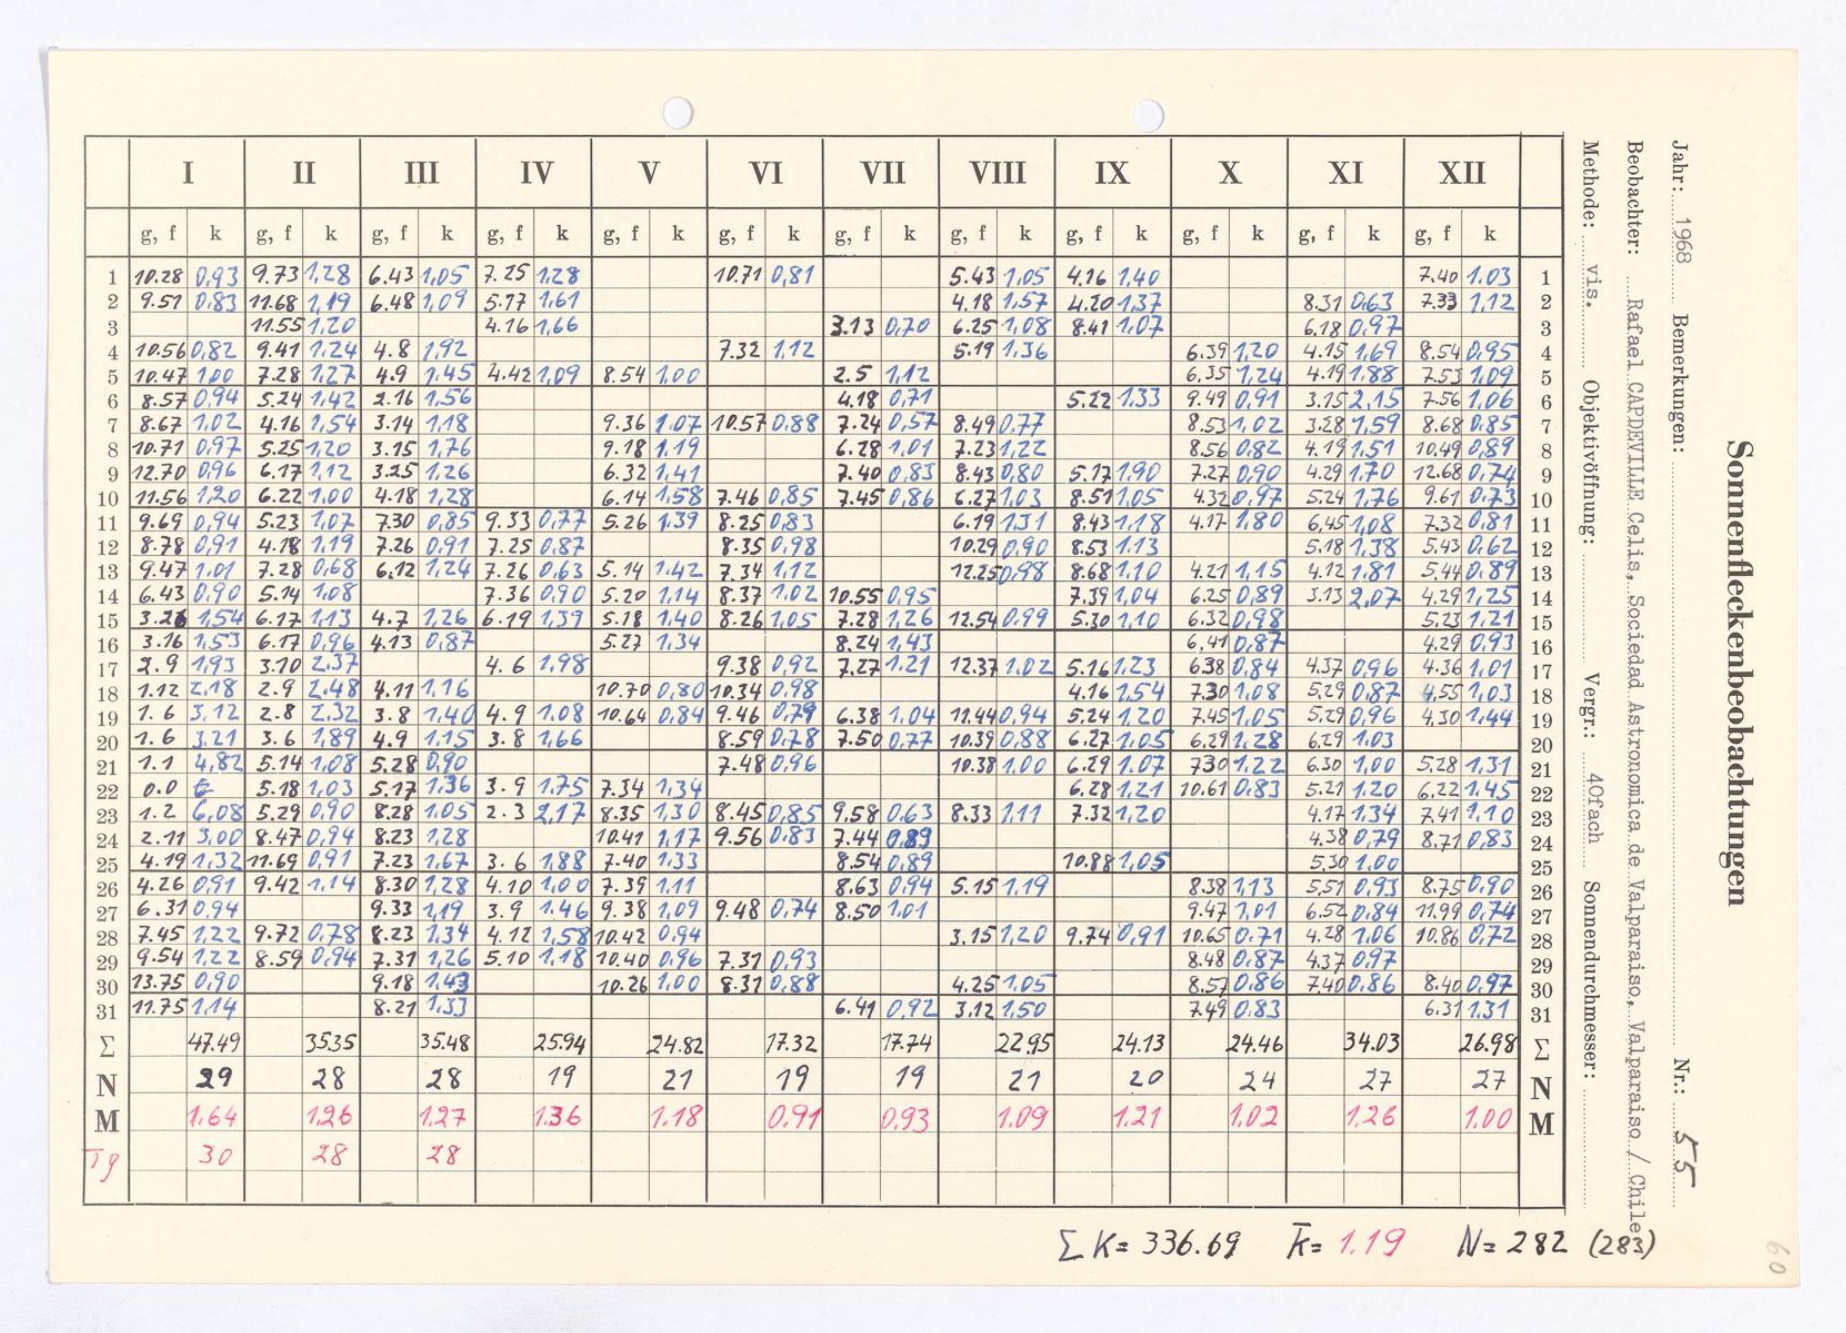 I II III IV V VI VII VIII IX X XI XII
g, f k g, f k g, f k g, f k g, f k g, f k g, f k g, f k g, f k g, f k g, f k g, f k
1 10.28 0,93 9.73 1,28 6.43 1,05 7.25 1,28 10.71 0,81 5.43 1,05 4.16 1,40 7.40 1.03 1
2 9.51 0,83 11.68 1,19 6.48 1,09 5.17 1,61 4.18 1,57 4.20 1,37 8.31 0,63 7.33 1,12 2
3 11.55 1,20 4.16 1,66 3.13 0,70 6.25 1,08 8.41 1,07 6.18 0,97 3
4 10.56 0,82 9.41 1.24 4.8 1,92 7.32 1,12 5.19 1,36 6.39 1,20 4.15 1,69 8.54 0,95 4
5 10.47 1,00 7.28 1,27 4.9 1,45 4.42 1,09 8.54 1,00 2.5 1,12 6,35 1,24 4.19 1,88 7.53 1,09 5
6 8.57 0,94 5.24 1,42 2.16 1,56 4.18 0,71 5.22 1.33 9.49 0,91 3.15 2,15 7.56 1,06 6
7 8.67 1,02 4.16 1,54 3.14 1,18 9.36 1,07 10.57 0,88 7.24 0,57 8,49 0,77 8.53 1,02 3.28 1,59 8.68 0.85 7
8 10.71 0,97 5.25 1,20 3.15 1,76 9.18 1,19 6.28 1,01 7.23 1,22 8.56 0,82 4.19 1,51 10,49 0,89 8
9 12.70 0,96 6.17 1,12 3.25 1,26 6.32 1,41 7.40 0,83 8.43 0,80 5.17 1,90 7.27 0,90 4.29 1,70 12.68 0,74 9
10 11.56 1,20 6.22 1.00 4.18 1,28 6.14 1,58 7.46 0,85 7.45 0,86 6.27 1,03 8.51 1,05 4.32 0,97 5.24 1,76 9.61 0,73 10
11 9.69 0,94 5.23 1,07 7.30 0,85 9.33 0,77 5.26 1,39 8.25 0,83 6.19 1,31 8.43 1,18 4.17 1,80 6,45 1,08 7.32 0,81 11
12 8.78 0,91 4.18 1,19 7.26 0,91 7.25 0,87 8.35 0,98 10.29 0,90 8.53 1.13 5.18 1,38 5.43 0,62 12
13 9.47 1,01 7.28 0,68 6,12 1,24 7.26 0,63 5.14 1,42 7.34 1,12 12.25 0,98 8.68 1,10 4.21 1,15 4.12 1,81 5.44 0.89 13
14 6.43 0,90 5.14 1,08 7.36 0,90 5.20 1,14 8.37 1.02 10.55 0,95 7.39 1,04 6.25 0,89 3.13 2,07 4.29 1,25 14
15 3.26 1,54 6.17 1,13 4.7 1,26 6.19 1,39 5.18 1,40 8.26 1,05 7.28 1,26 12.54 0.99 5.30 1,10 6.32 0,98 5.23 1,21 15
16 3.16 1,53 6.17 0,96 4.13 0,87 5.27 1,34 8.24 1,43 6,41 0,87 4.29 0,93 16
17 2.9 1,93 3.10 2,37 4.6 1,98 9.38 0,92 7.27 1.21 12.37 1.02 5.16 1,23 638 0,84 4.37 0,96 4.36 1,01 17
18 1.12 2,18 2.9 2,48 4.11 1,16 10.70 0,80 10.34 0,98 4.16 1,54 7.30 1,08 5.29 0,87 4.55 1,03 18
19 1.6 3,12 2.8 2,32 3.8 1,40 4.9 1.08 10.64 0,84 9.46 0,79 6.38 1,04 11.44 0,94 5.24 1,20 7.45 1,05 5.29 0,96 4.30 1,44 19
20 1.6 3,21 3.6 1,89 4.9 1,15 3.8 1,66 8.59 0,78 7.50 0,77 10.39 0,88 6.27 1,05 6.29 1,28 6,29 1.03 20
21 1.1 4,82 5.14 1,08 5.28 0,90 7.48 0,96 10.38 1,00 6.29 1.07 730 1.22 6.30 1,00 5.28 1,31 21
22 0.0 5.18 1,03 5.17 1,36 3.9 1,75 7.34 1,34 6.28 1,21 10.61 0,83 5.21 1.20 6,22 1.45 22
23 1.2 6,08 5.29 0,90 8.28 1.05 2.3 2,17 8.35 1,30 8.45 0,85 9.58 0.63 8.33 1,11 7.32 1,20 4.17 1.34 7.41 1.10 23
24 2.11 3,00 8.47 0,94 8.23 1,28 10.41 1,17 9.56 0,83 7.44 0,89 4.38 0,79 8.71 0,83 24
25 4.19 1,32 11.69 0,91 7.23 1,67 3.6 1,88 7.40 1.33 8.54 0,89 10.88 1,05 5.30 1.00 25
26 4.26 0,91 9.42 1,14 8.30 1,28 4.10 1,00 7.39 1,11 8.63 0,94 5.15 1,19 8.38 1,13 5,51 0,93 8.75 0,90 26
27 6.31 0,94 9.33 1,19 3.9 1.46 9.38 1,09 9.48 0,74 8.50 1,01 9.47 1,01 6.52 0,84 11.99 0,74 27
28 7.45 1,22 9.72 0,78 8.23 1,34 4.12 1,58 10.42 0,94 3.15 1,20 9.74 0,91 10.65 0.71 4.28 1,06 10.86 0,72 28
29 9.54 1,22 8.59 0,94 7.31 1,26 5.10 1,18 10.40 0,96 7.31 0,93 8.48 0,87 4.37 0,97 29
30 13.75 0,90 9.18 1,43 10.26 1,00 8.31 0,88 4.25 1.05 8.57 0,86 7.40 0,86 8.40 0,97 30
31 11.75 1,14 8.21 1,33 6.41 0,92 3.12 1,50 7.49 0,83 6.31 1.31 31
Σ 47.49 35.35 35.48 25.94 24.82 17.32 17.74 22.95 24.13 24.46 34.03 26.98 Σ
N 29 28 28 19 21 19 19 21 20 24 27 27 N
M 1.64 1,26 1,27 1.36 1.18 0.91 0.93 1.09 1.21 1.02 1.26 1.00 M
Tg 30 28 28
Σ K = 336.69 k̄ = 1.19 N = 282 (283)
Sonnenfleckenbeobachtungen
Jahr: 1968 Bemerkungen: Nr.: 55
Beobachter: Rafael CAPDEVILLE Celis, Sociedad Astronomica de Valparaiso, Valparaiso / Chile
Methode: vis. Objektivöffnung: Vergr.: 40fach Sonnendurchmesser:
60